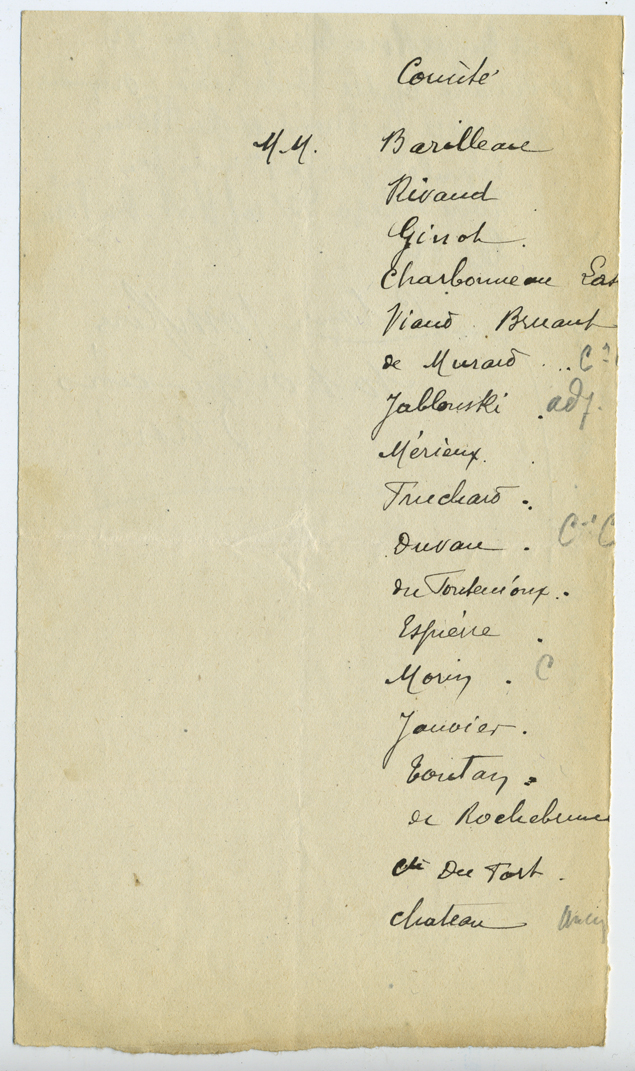 Comité
M.M. Barilleau
Rivaud
Girrot
Charbonneau
Viaud Bruant
de Murard ... C
Jablonski . adj.
Mérieux.
Truchard .
Duvau . C
du Fontenioux .
Espiérre .
Morin . C
Janvier .
Toutan
de Rochebrune
Du Fort .
Chateau